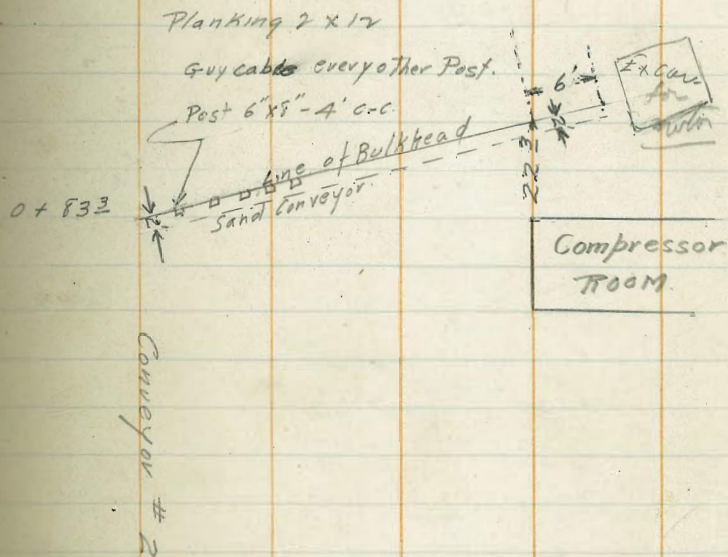 Planking 2 x 12
Guy cable every other Post.
Post 6"x8"-4' c-c.
6'
Excav.
for
Line of Bulkhead
2'
Sand Conveyor.
0 + 83 3
2'
22 3
Compressor
Room.
Conveyor # 2